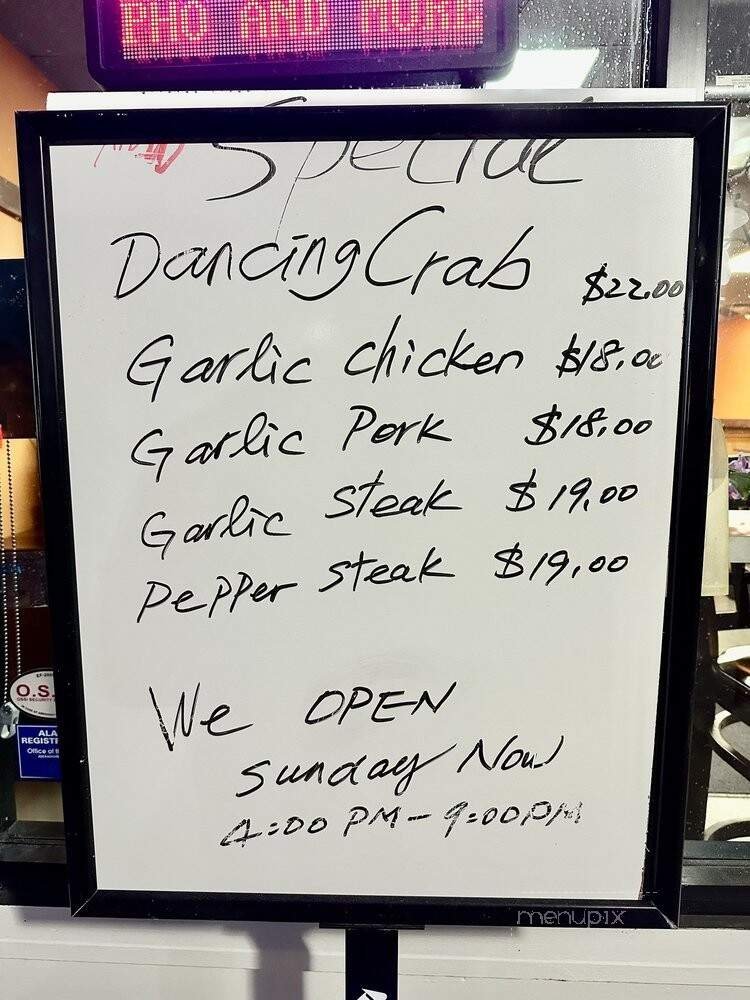 PHO AND MORE
Special
Dancing Crab $22.00
Garlic chicken $18.00
Garlic Pork $18.00
Garlic steak $19.00
Pepper steak $19.00
We OPEN
Sunday Now
4:00 PM - 9:00 PM
O.S.
ALA
REGIST
Office of t
menupix